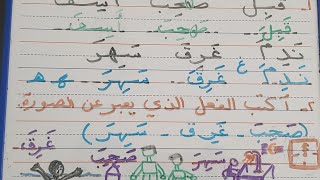 قَبِلَ صَحِبَ أَسِفَ
قَبِلَ صَحِبَ أَسِفَ
نَدِمَ غَرِقَ سَهِرَ
نَدِمَ غ غَرِقَ سَهِرَ ه ه
٢- أكتب الفعل الذي يعبر عن الصورة
(صَحِبَ - غَرِقَ - سَهِرَ)
سَهِرَ صَحِبَ غَرِقَ